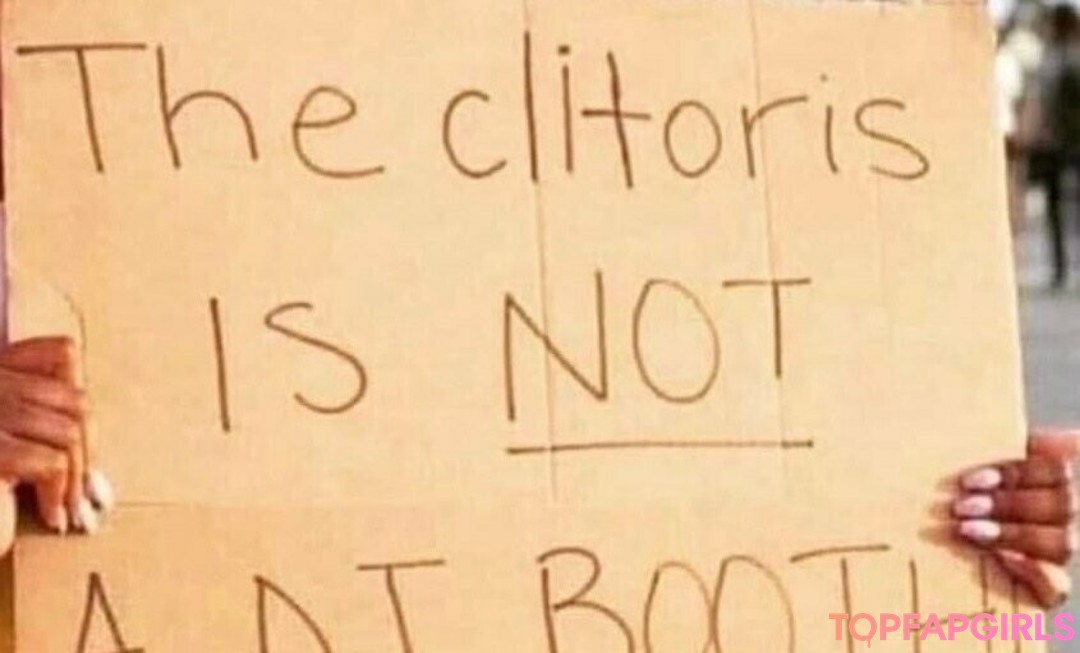 The clitoris
IS NOT
A DJ BOOTH
TOPFAPGIRLS